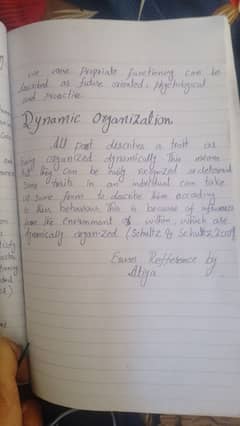 we use Propriate functioning can be
described as future oriented, Psychological
and Proactive.
Dynamic Organization
All port describes a trait as
being organized dynamically This means
that they can be
Some traits in an individual can take
some form to describe him according
to his behaviour. This is because of influences
from the Environment & within, which are
dynamically organized. (Schultz & Schultz, 2009)
Refference by
Atiya